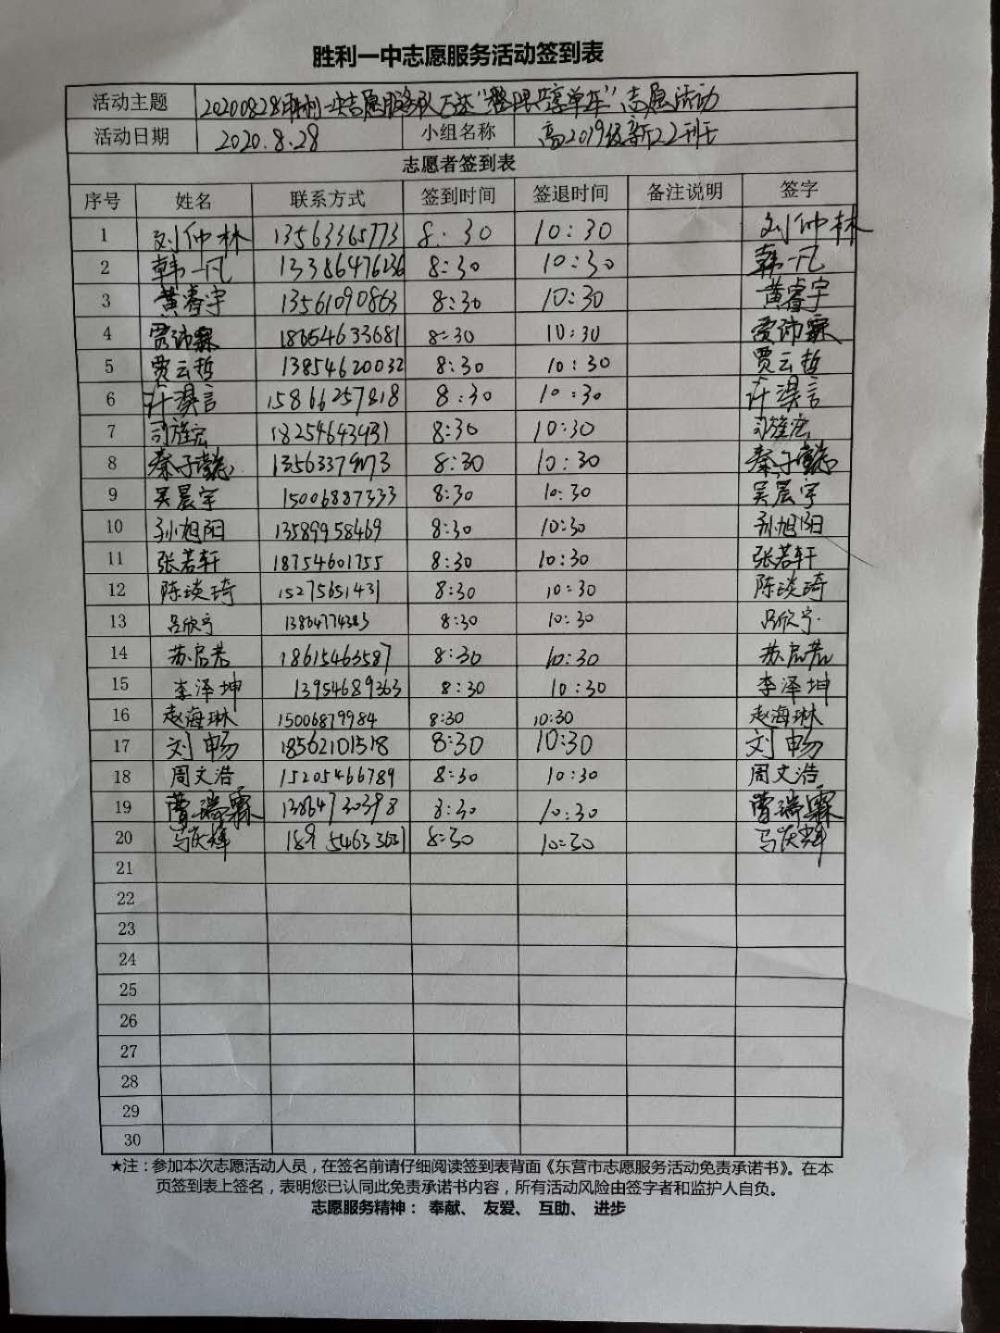 胜利一中志愿服务活动签到表
活动主题 20200828胜利一中志愿服务队万达"整理共享单车"志愿活动
活动日期 2020.8.28 小组名称 高2019级新22班
志愿者签到表
序号 姓名 联系方式 签到时间 签退时间 备注说明 签字
1 刘仲林 13563365773 8:30 10:30 刘仲林
2 韩一凡 13386476236 8:30 10:30 韩一凡
3 黄睿宇 13561090863 8:30 10:30 黄睿宇
4 贾沛霖 18654633681 8:30 10:30 贾沛霖
5 贾云哲 13854620032 8:30 10:30 贾云哲
6 许淏言 15866257818 8:30 10:30 许淏言
7 司旌宏 18254643431 8:30 10:30 司旌宏
8 秦子懿 8:30 10:30 秦子懿
9 吴晨宇 15006887333 8:30 10:30 吴晨宇
10 孙旭阳 13589958469 8:30 10:30 孙旭阳
11 张若轩 18754601755 8:30 10:30 张若轩
12 陈淡琦 15275651431 8:30 10:30 陈淡琦
13 吕欣宁 8:30 10:30 吕欣宁
14 苏启君 18615463587 8:30 10:30 苏启君
15 李泽坤 13954689363 8:30 10:30 李泽坤
16 赵海琳 15006879984 8:30 10:30 赵海琳
17 刘畅 18562101518 8:30 10:30 刘畅
18 周文浩 15205466789 8:30 10:30 周文浩
19 曹瑞霖 13864730398 8:30 10:30 曹瑞霖
20 马庆辉 8:30 10:30 马庆辉
21
22
23
24
25
26
27
28
29
30
★注：参加本次志愿活动人员，在签名前请仔细阅读签到表背面《东营市志愿服务活动免责承诺书》。在本
页签到表上签名，表明您已认同此免责承诺书内容，所有活动风险由签字者和监护人自负。
志愿服务精神： 奉献、 友爱、 互助、 进步